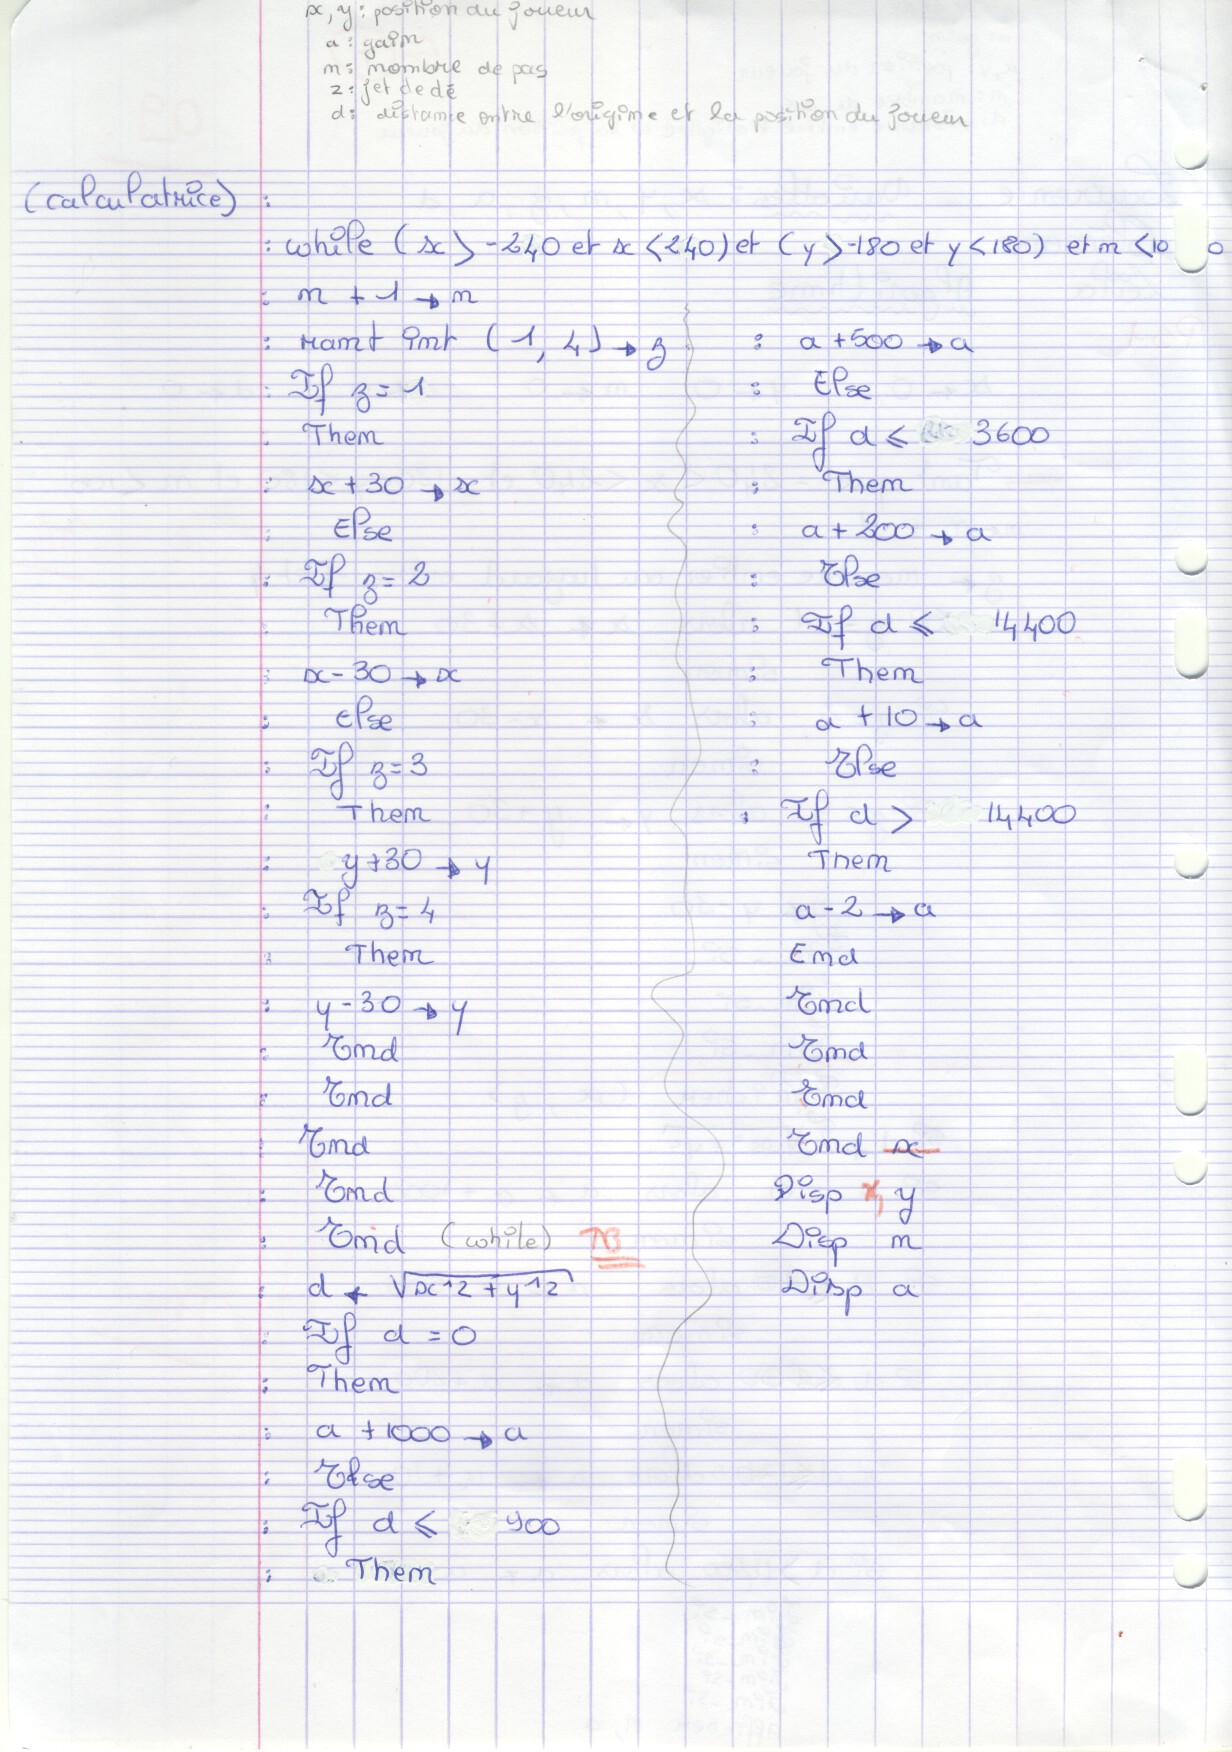 x, y : position du joueur
a : gain
n : nombre de pas
z : jet de dé
d : distance entre l'origine et la position du joueur
(calculatrice) :
: while (x > -240 et x < 240) et (y > -180 et y < 180) et n < 10 0
: n + 1 → n
: rant int (1, 4) → z
: If z = 1
: Then
: x + 30 → x
: Else
: If z = 2
: Then
: x - 30 → x
: Else
: If z = 3
: Then
: y + 30 → y
: If z = 4
: Then
: y - 30 → y
: End
: End
: End
: End
: End (while) TB
: d ← √x^2 + y^2
: If d = 0
: Then
: a + 1000 → a
: Else
: If d ≤ 900
: Then
: a + 500 → a
: Else
: If d ≤ 3600
: Then
: a + 200 → a
: Else
: If d ≤ 14400
: Then
: a + 10 → a
: Else
: If d > 14400
Then
a - 2 → a
End
End
End
End
End x
Disp x, y
Disp n
Disp a